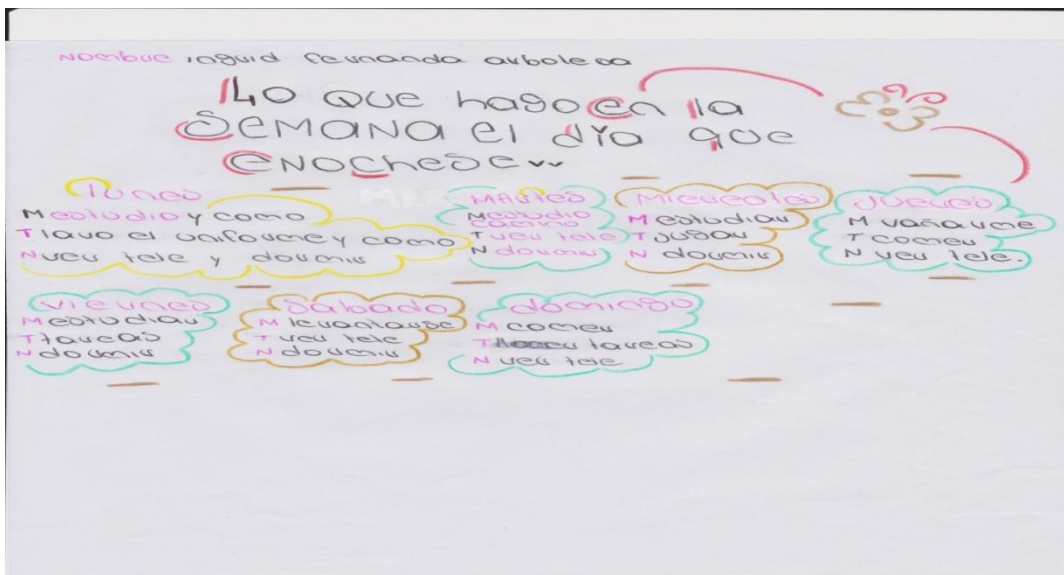 Nombre inguid fernanda arboleda
Lo que hago en la
semana el dia que
enochese
lunes
M estudio y como
T lavo el uniforme y como
N ver tele y dormir
Martes
M estudio
camino
T ver tele
N dormir
Miercoles
M estudiar
T jugar
N dormir
Jueves
M vañarme
T comer
N ver tele.
viernes
M estudiar
T tareas
N dormir
Sabado
M levantarse
T ver tele
N dormir
domingo
M comer
T tareas
N ver tele